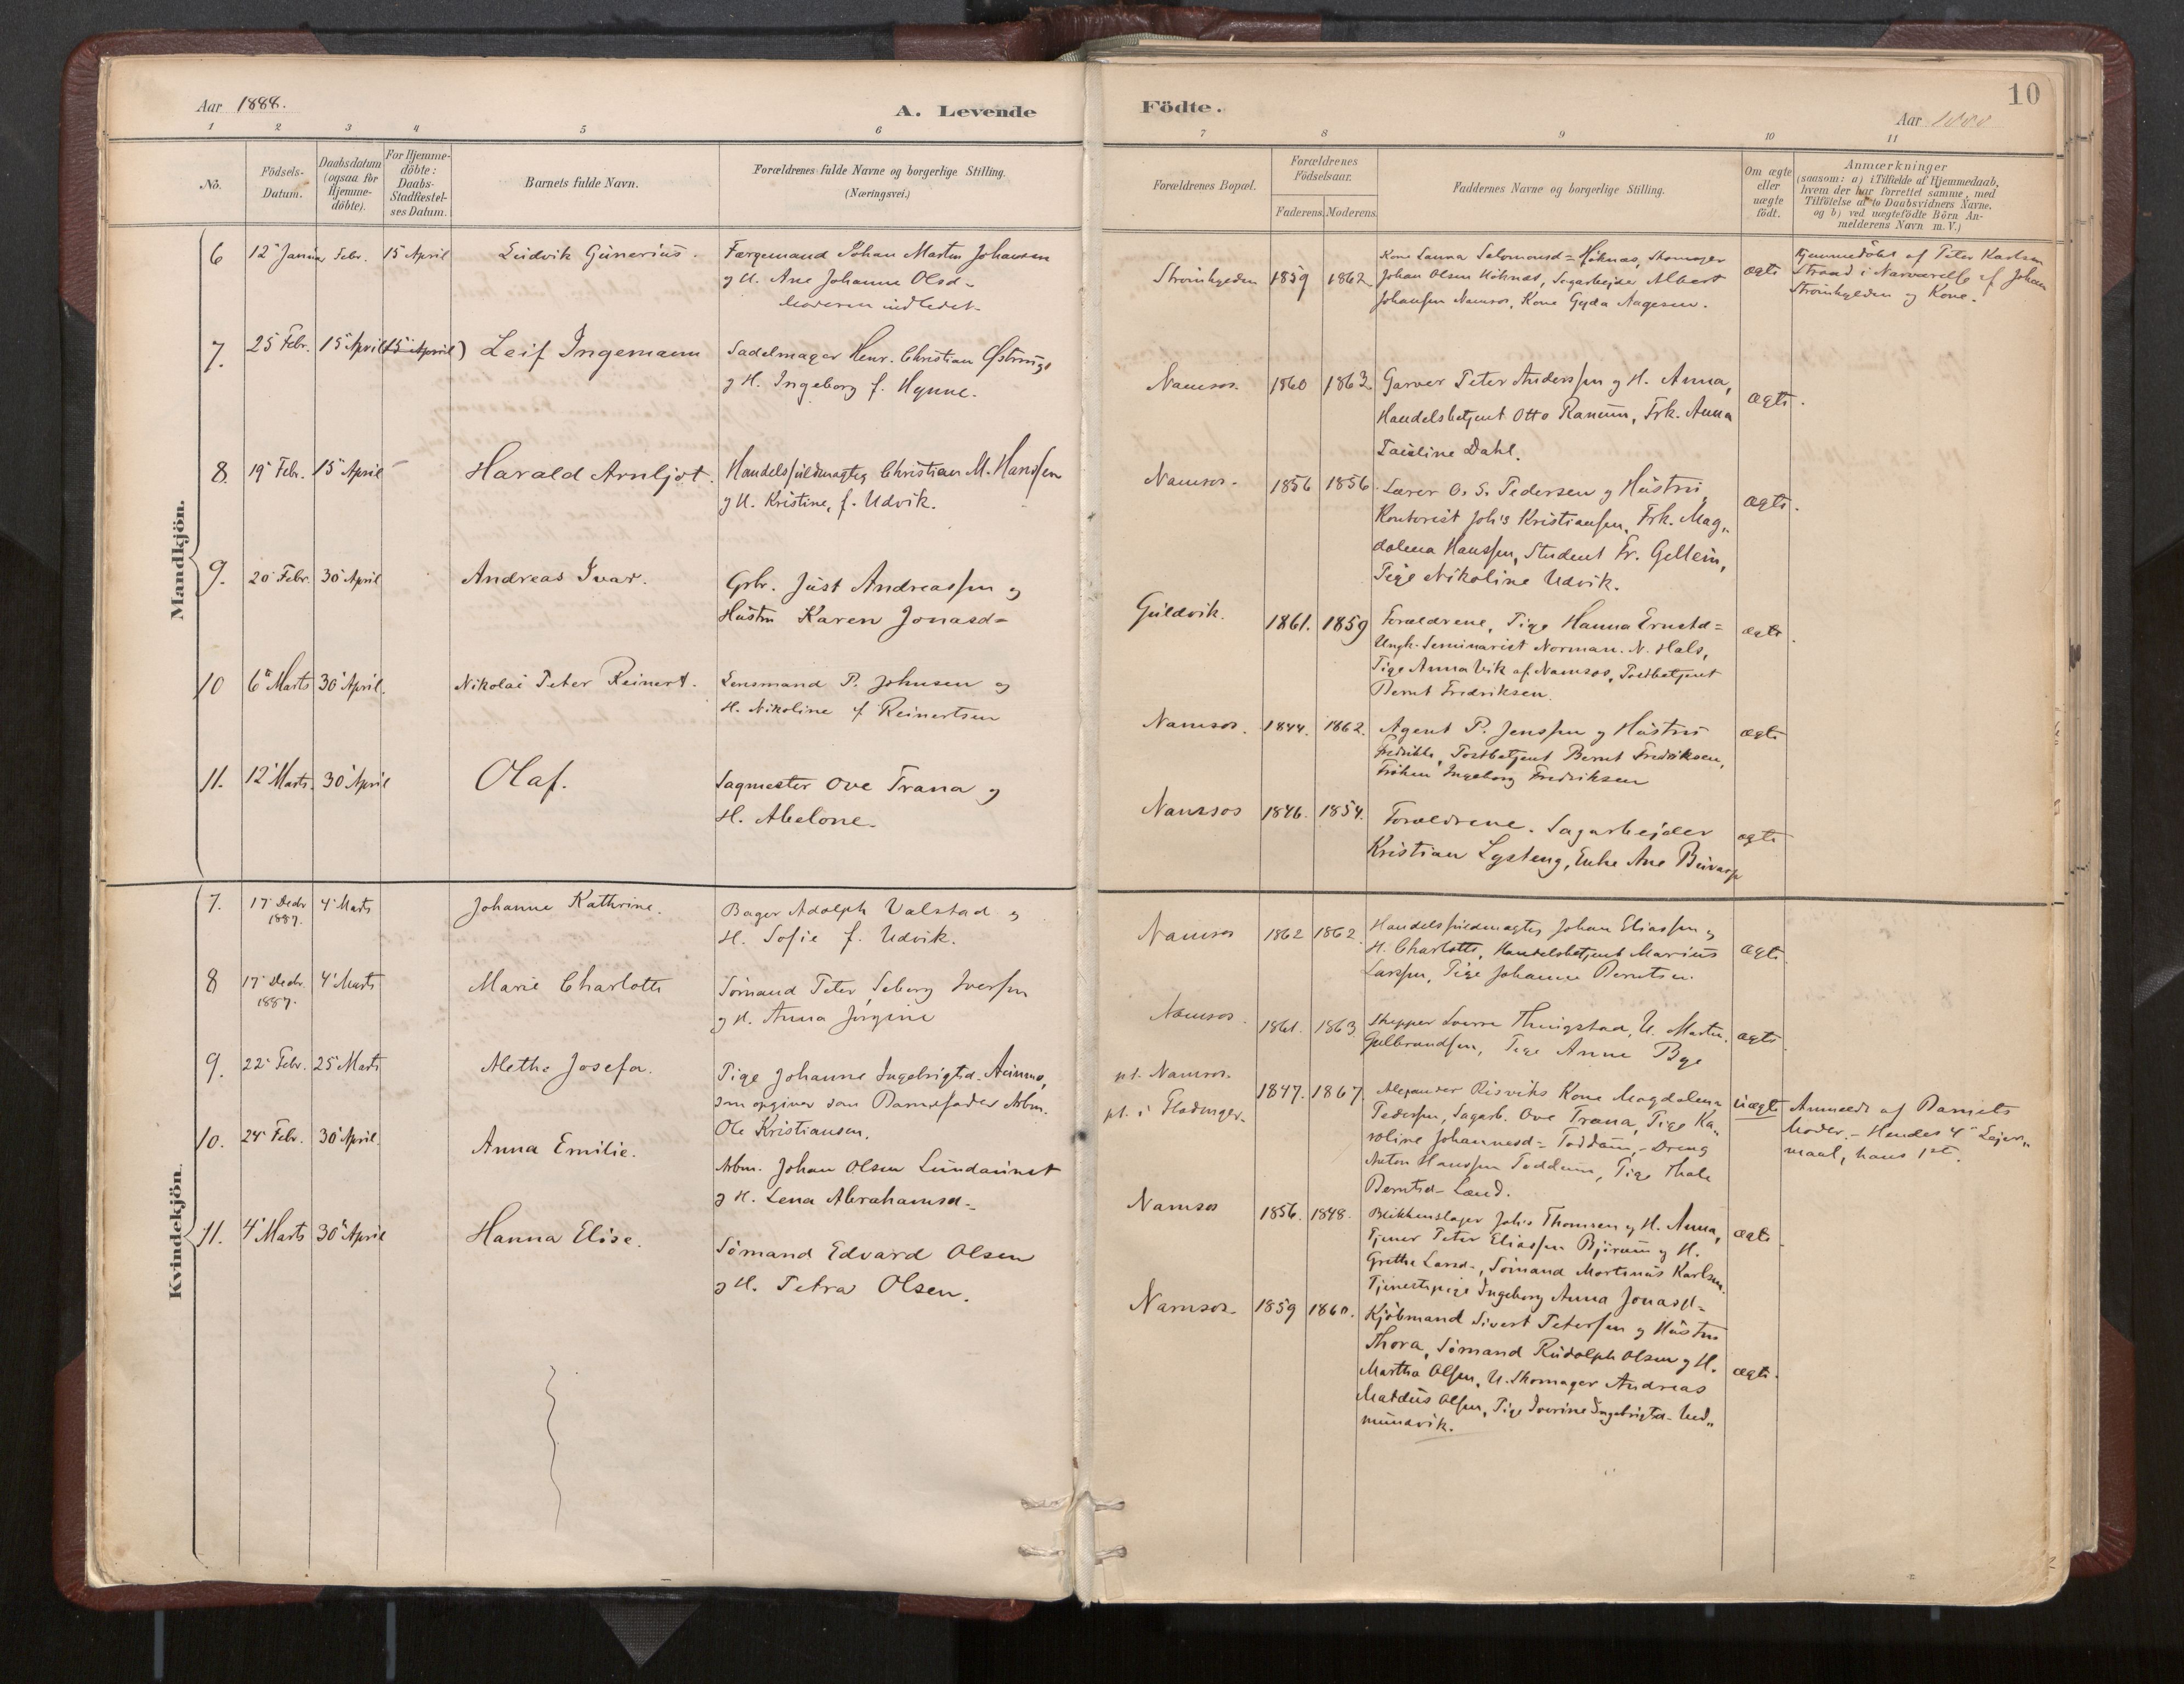 Aar 1888.
A. Levende
1 2 3 4 5 6
No.
Födsels-
Datum.
Daabsdatum
(ogsaa for
Hjemme-
döbte).
For Hjemme-
döbte:
Daabs-
Stadfæstel-
ses Datum.
Barnets fulde Navn.
Forældrenes fulde Navne og borgerlige Stilling.
(Næringsvei.)
Mandkjön.
6 12 Januar Febr. 15 April Ludvik Gunerius. Færgemand Johan Martin Johansen
og H. Ane Johanne Olsd-
Moderen indledet
7. 25 Febr. 15 April 15 April) Leif Ingemann Sadelmager Henr. Christian
og H. Ingeborg f. Hynne.
8. 19 Febr. 15 April Harald Arnljot. Handelsfuldmægtig Christian M. Hanssen
og H. Kristine, f. Udvik.
9. 20 Febr. 30 April Andreas Ivar. Gbr. Just Andreassen og
Hustru Karen Jonasd=
10 6 Marts 30 April. Nikolai Peter Reinert. Lensmand P. Johnsen og
H. Nikoline f Reinertsen
11. 12 Marts. 30 April Olaf. Sagmester Ove Trana og
H. Abelone.
Kvindekjön.
7. 17 Decbr 4 Marts Johanne Kathrine. Bager Adolph Valstad og
1887. H. Sofie f. Udvik.
8 17 Decbr. 4 Marts Marie Charlotte Sömand Peter Seberg Iversen
1887. og H. Anna Jörgine
9. 22 Febr. 25 Marts Alethe Josefa. Pige Johanne Ingebrigtsd.
som opgiver som Barnefader Arbm.
Ole Kristiansen.
10. 24 Febr. 30 April. Anna Emilie. Arbm. Johan Olsen Lundaunet
og H. Lena Abrahamsd-
11. 4 Marts 30 April Hanna Elise. Sömand Edvard Olsen
og H. Petra Olsen.
Födte.
10
Aar 1888
7 8 9 10 11
Forældrenes Bopæl.
Forældrenes
Födselsaar.
Faderens. Moderens.
Faddernes Navne og borgerlige Stilling.
Om ægte
eller
uægte
födt.
Anmærkninger
(saasom: a) i Tilfælde af Hjemmedaab,
hvem der har forrettet samme, med
Tilföielse af to Daabsvidners Navne,
og b) ved uægtefödte Börn An-
melderens Navn m. V.)
Strömhylden 1859 1862. Kone Launa Salomonsd= Höknæs, Skomager
Johan Olsen Höknæs, Sagarbejder Albert
Johansen Namsos, Kone Gyda Aagesen.
ægte
Hjemmedöbt af Peter Karlsen
Strand i Nærværelse af Johan
Strömhylden og Kone.
Namsos. 1860 1863. Garver Peter Anderssen og H. Anna,
Handelsbetjent Otto Ranum, Frk. Anna
Pauline Dahl.
ægte.
Namsos. 1856 1856. Lærer O. S. Pedersen og Hustru,
Kontorist Johs Kristiansen, Frk. Mag„
dalena Hanssen, Student Fr. Gellein,
Pige Nikoline Udvik.
ægte.
Guldvik. 1861. 1859 Forældrene, Pige Hanna Ernstd=
Ungk. Seminarist Norman. N. Hals,
Pige Anna Vik af Namsos, Postbetjent
Bernt Fredriksen.
ægte.
Namsos. 1844. 1862. Agent P. Jenssen og Hustru
Fredrikke, Postbetjent Bernt Fredriksen,
Fröken Ingeborg Fredriksen
ægte
Namsos 1846. 1854. Forældrene. Sagarbejder
Kristian Lysteng, Enke Ane
ægte
Namsos 1862 1862. Handelsfuldmægtig Johan Eliassen og
H. Charlotte, Handelsbetjent Marius
Larssen, Pige Johanne Berntsen.
ægte.
Namsos. 1861. 1863. Skipper Sverre Thingstad, U. Martin
Gulbrandsen, Pige Anne Bye
ægte.
pt. Namsos.
pt. i Fladanger. 1847. 1867. Alexander Risviks Kone Magdalena
Pedersen, Sagarb. Ove Trana, Pige Ka„
roline Johannesd= Toddum, - Dreng
Anton Hanssen Toddum, Pige Thale
Berntsd- Land.
uægte
Anmeldt af Barnets
Moder. - Hendes 4 Lejer„
maal, hans 1st.
Namsos 1856. 1848. Blikkenslager Johs Thomsen og H. Anna,
Tjener Peter Eliassen Björum og H.
Grethe Larsd-, Sömand Martinus Karlsen.
Tjenestepige Ingeborg Anna Jonasd=
ægte.
Namsos. 1859 1860. Kjöbmand Sivert Petersen og Hustru
Thora, Sömand Rudolph Olsen og H.
Martha Olsen, U. Skomager Andreas
Matdeus Olsen, Pige Iverine Ingebrigtsd-
ægte.